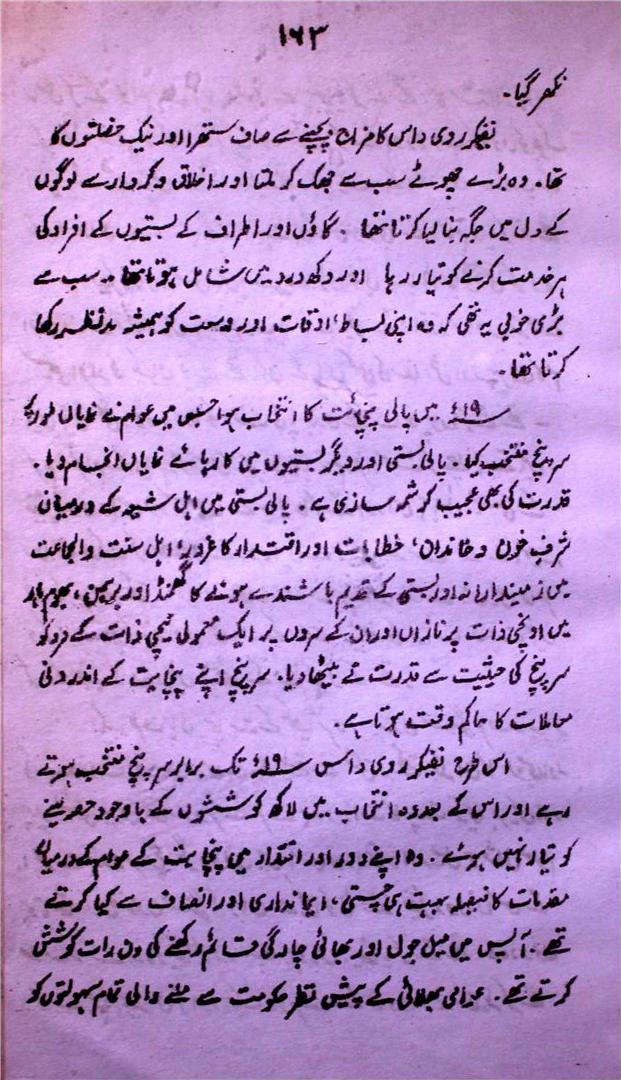 ۱۶۳
نکھر گیا۔
نفیکر روی داس کا مزاج بچپنے سے صاف ستھرا اور نیک خصلتوں کا
تھا۔ وہ بڑے چھوٹے سب سے جھک کر ملتا اور اخلاق و کردار سے لوگوں
کے دل میں جگہ بنا لیا کرتا تھا۔ گاؤں اور اطراف کے بستیوں کے افراد کی
ہر خدمت کرنے کو تیار رہا اور دکھ درد میں شامل ہوتا تھا۔ سب سے
بڑی خوبی یہ تھی کہ وہ اپنی بساط، اوقات اور وسعت کو ہمیشہ مدنظر رکھا
کرتا تھا۔
۱۹ء میں پالی پنچائت کا انتخاب ہوا جس میں عوام نے نمایاں طور پر
سرپنچ منتخب کیا۔ پالی بستی اور دیگر بستیوں میں کارہائے نمایاں انجام دیا۔
قدرت کی بھی عجیب کرشمہ سازی ہے۔ پالی بستی میں اہل شیعہ کے درمیان
شرف خون و خاندان، خطابات اور اقتدار کا غرور، اہل سنت والجماعت
میں زمیندارانہ اور بستی کے قدیم باشندے ہونے کا گھمنڈ اور برہمن، بھومہار
میں اونچی ذات پر نازاں اور ان کے سروں پر ایک معمولی نیچی ذات کے مرد کو
سرپنچ کی حیثیت سے قدرت نے بیٹھا دیا۔ سرپنچ اپنے پنچایت کے اندرونی
معاملات کا حاکم وقت ہوتا ہے۔
اس طرح نفیکر روی داس ۱۹ء تک برابر سرپنچ منتخب ہوتے
رہے اور اس کے بعد وہ انتخاب میں لاکھ کوششوں کے باوجود حصہ لینے
کو تیار نہیں ہوئے۔ وہ اپنے دور اور اقتدار میں پنچایت کے عوام کے درمیان
مقدمات کا فیصلہ بہت ہی چستی، ایمانداری اور انصاف سے کیا کرتے
تھے۔ آپس میں میل جول اور بھائی چارگی قائم رکھنے کی دن رات کوشش
کرتے تھے۔ عوامی بھلائی کے پیش نظر حکومت سے ملنے والی تمام سہولتوں کو